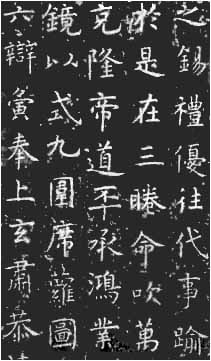 之錫禮優往代事踰
於是在三眷命吹萬
克隆帝道丕承鴻業
鏡以式九圍席蘿圖
六辯寅奉上玄肅恭